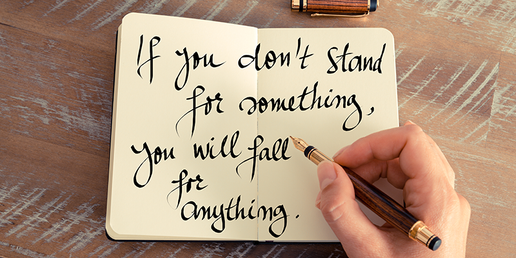 If you don't stand
for something,
you will fall
for
anything.